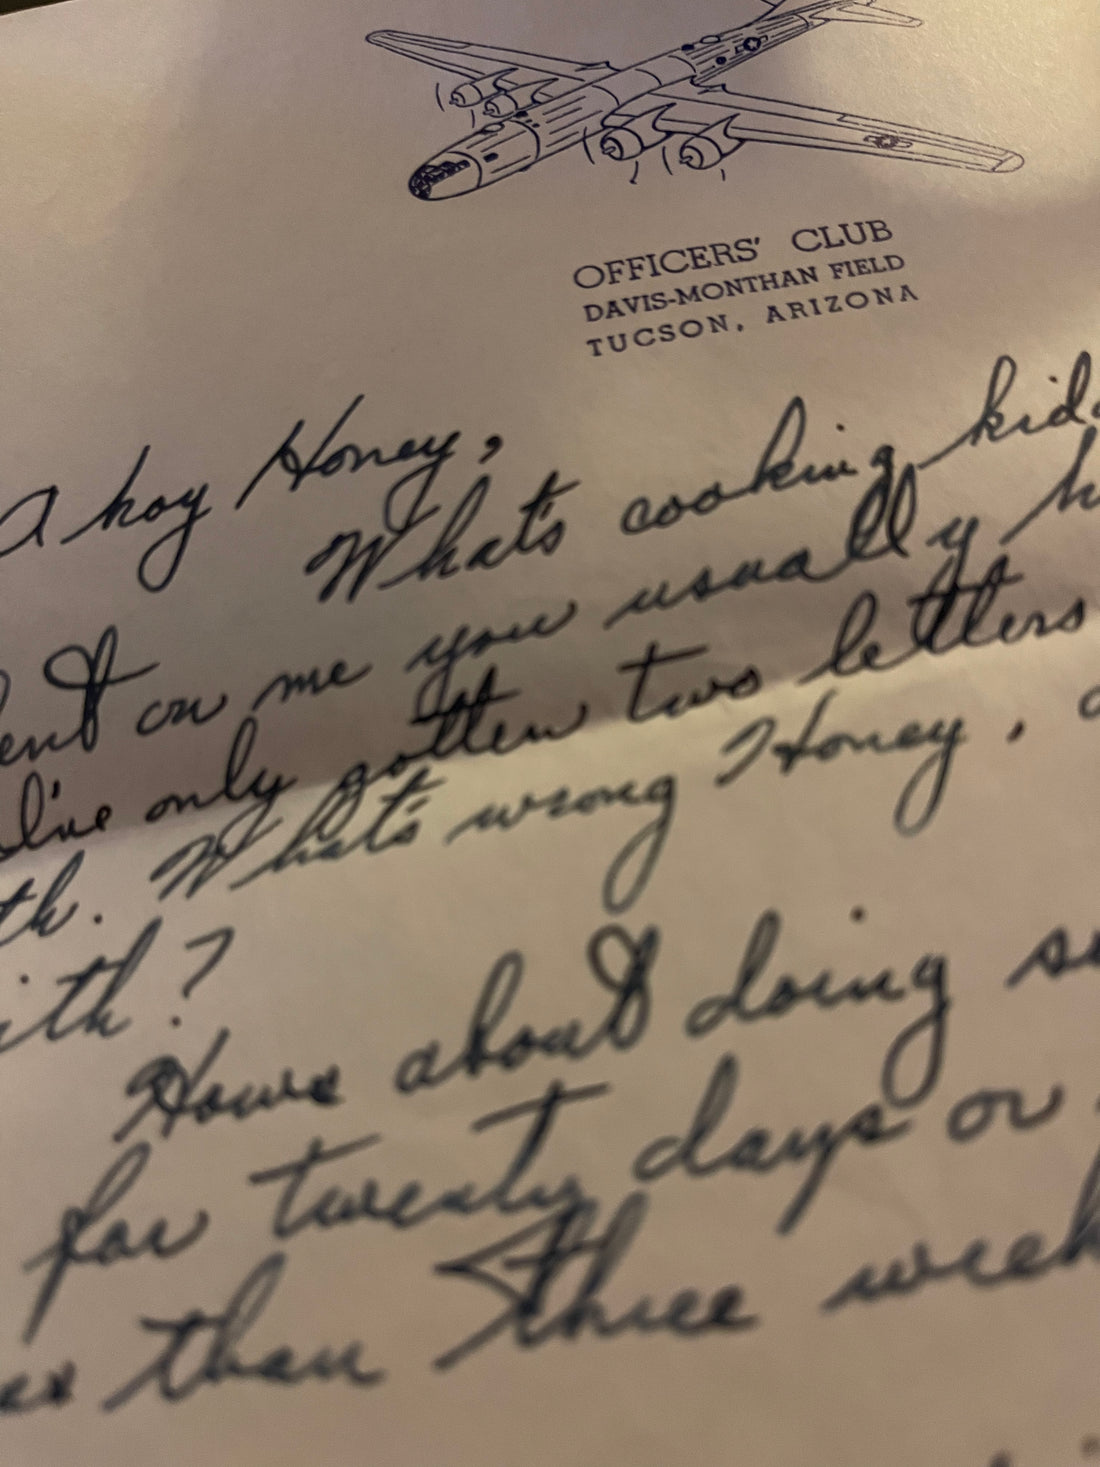 OFFICERS' CLUB
DAVIS-MONTHAN FIELD
TUCSON, ARIZONA
Ahoy Honey,
What's cooking kid
on me you usually
I've only gotten two letters
What's wrong Honey,
Hows about doing
for twenty days or
than three week